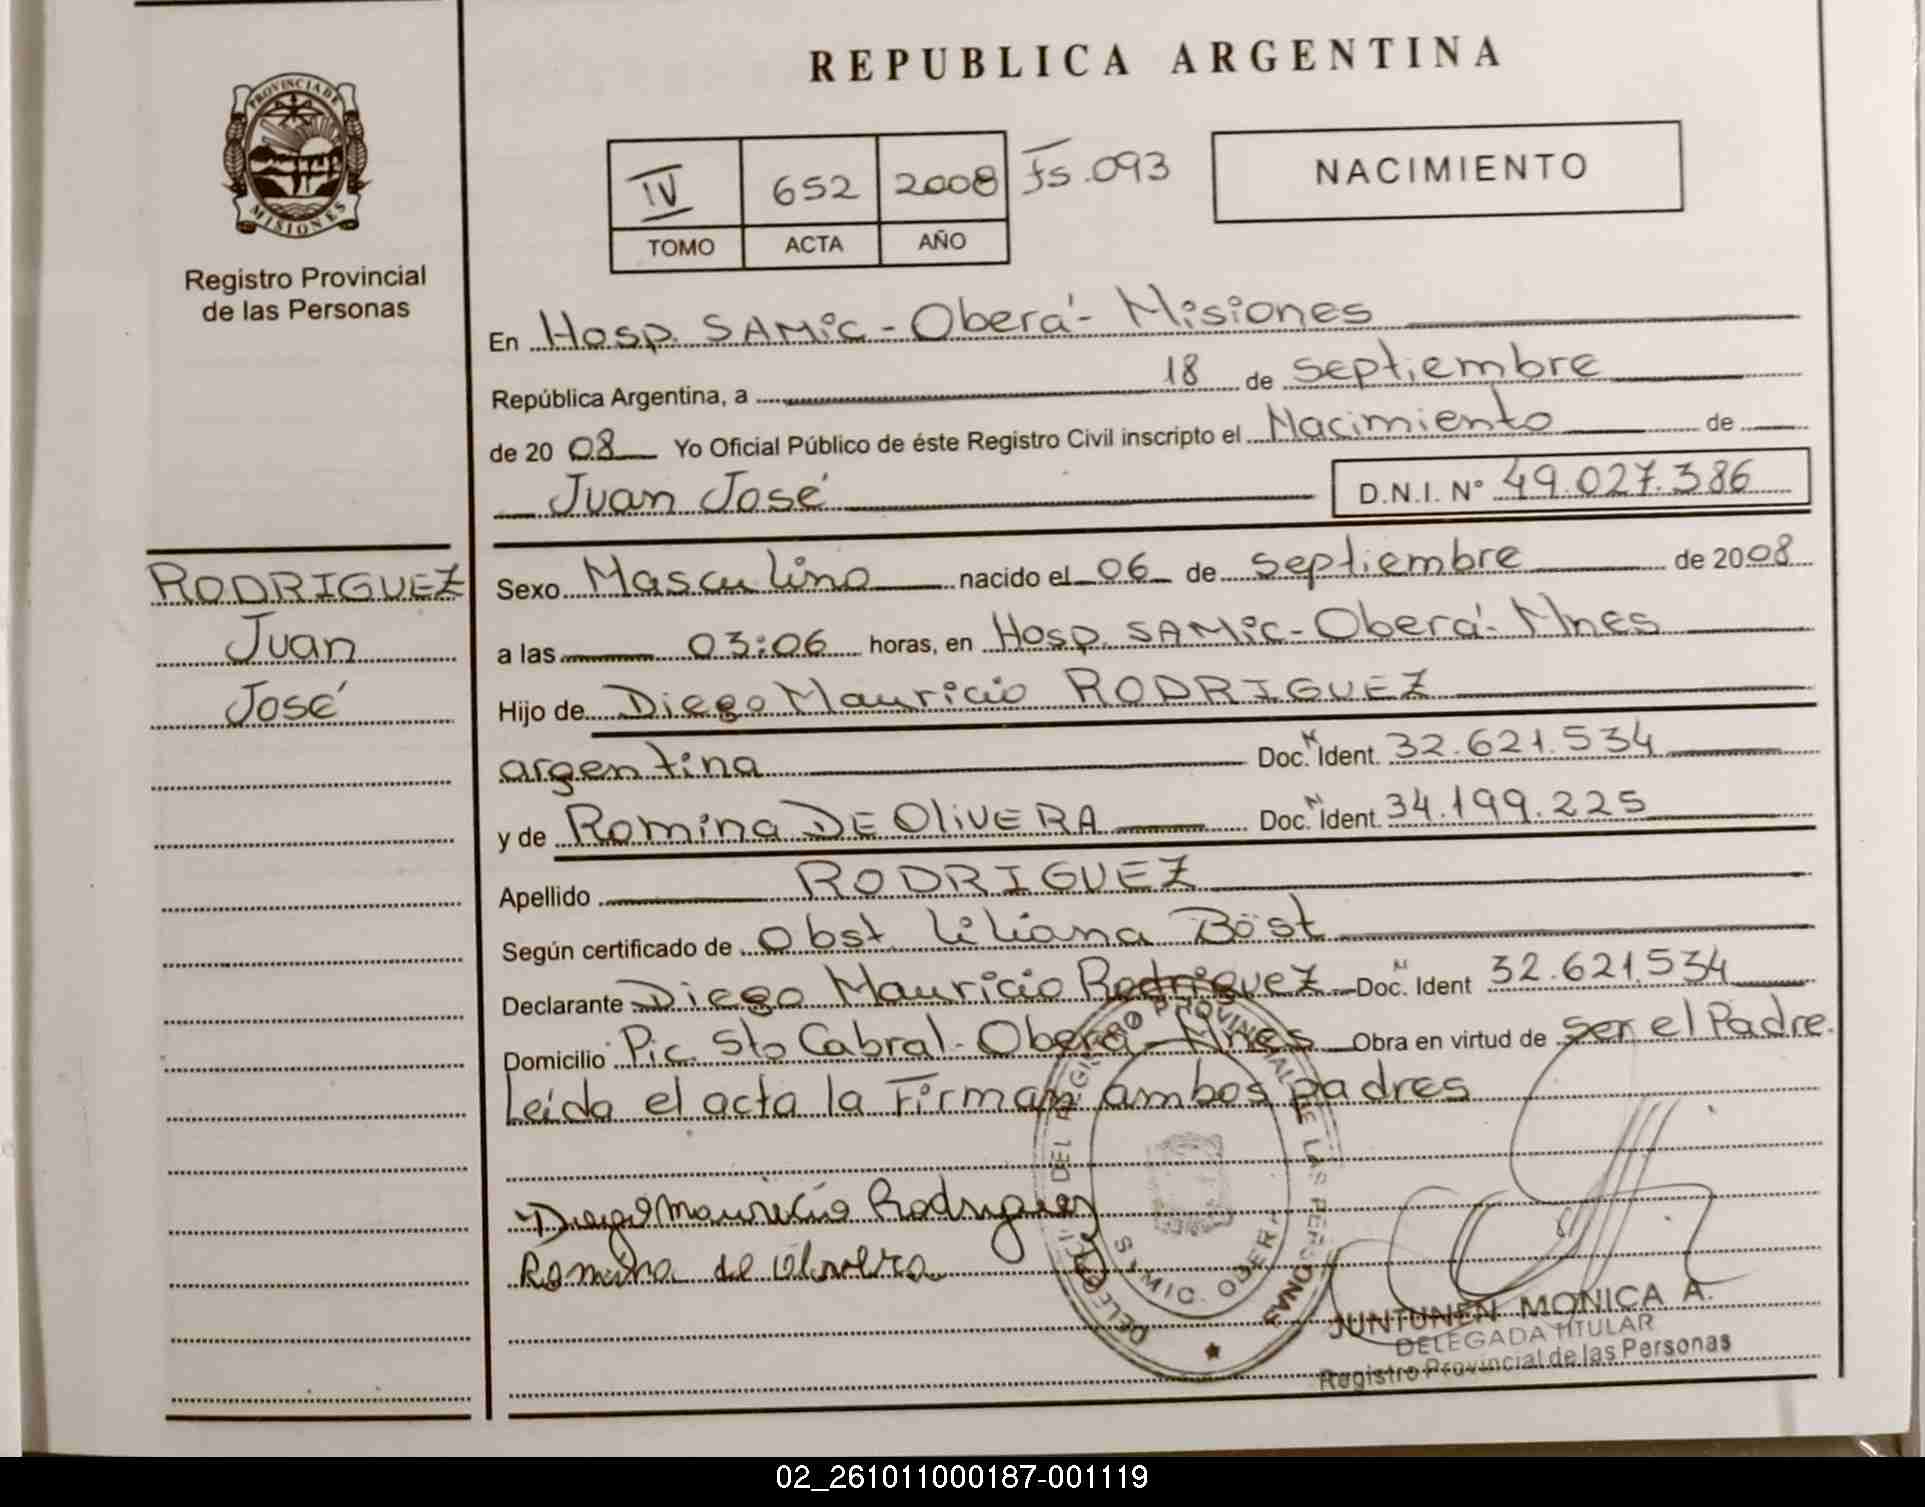 REPUBLICA ARGENTINA
PROVINCIA DE
MISIONES
Registro Provincial
de las Personas
IV 652 2008 Fs.093
TOMO ACTA AÑO
NACIMIENTO
En Hosp. SAMIC - Oberá - Misiones
República Argentina, a 18 de septiembre
de 2008 Yo Oficial Público de éste Registro Civil inscripto el Nacimiento de
Juan José D.N.I. N° 49.027.386
RODRIGUEZ
Juan
José
Sexo Masculino nacido el 06 de septiembre de 2008
a las 03:06 horas, en Hosp. SAMIC - Oberá - Mnes
Hijo de Diego Mauricio RODRIGUEZ
argentina Doc. N Ident. 32.621.534
y de Romina DE OLIVERA Doc. N Ident. 34.199.225
Apellido RODRIGUEZ
Según certificado de Obst. Liliana Böst
Declarante Diego Mauricio Rodriguez Doc. N Ident 32.621.534
Domicilio Pic. Sto Cabral - Oberá - Mnes Obra en virtud de ser el Padre.
Leída el acta la Firman ambos padres
Diego Mauricio Rodriguez
Romina de Olivera
DELEG DEL REGISTRO PROVINCIAL DE LAS PERSONAS
SAMIC. OBERA
JUNTUNEN MONICA A.
DELEGADA TITULAR
Registro Provincial de las Personas
02_261011000187-001119